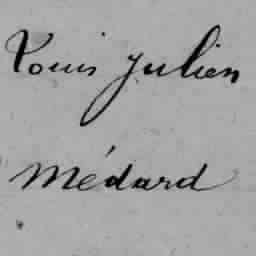 Louis Julien
Médard